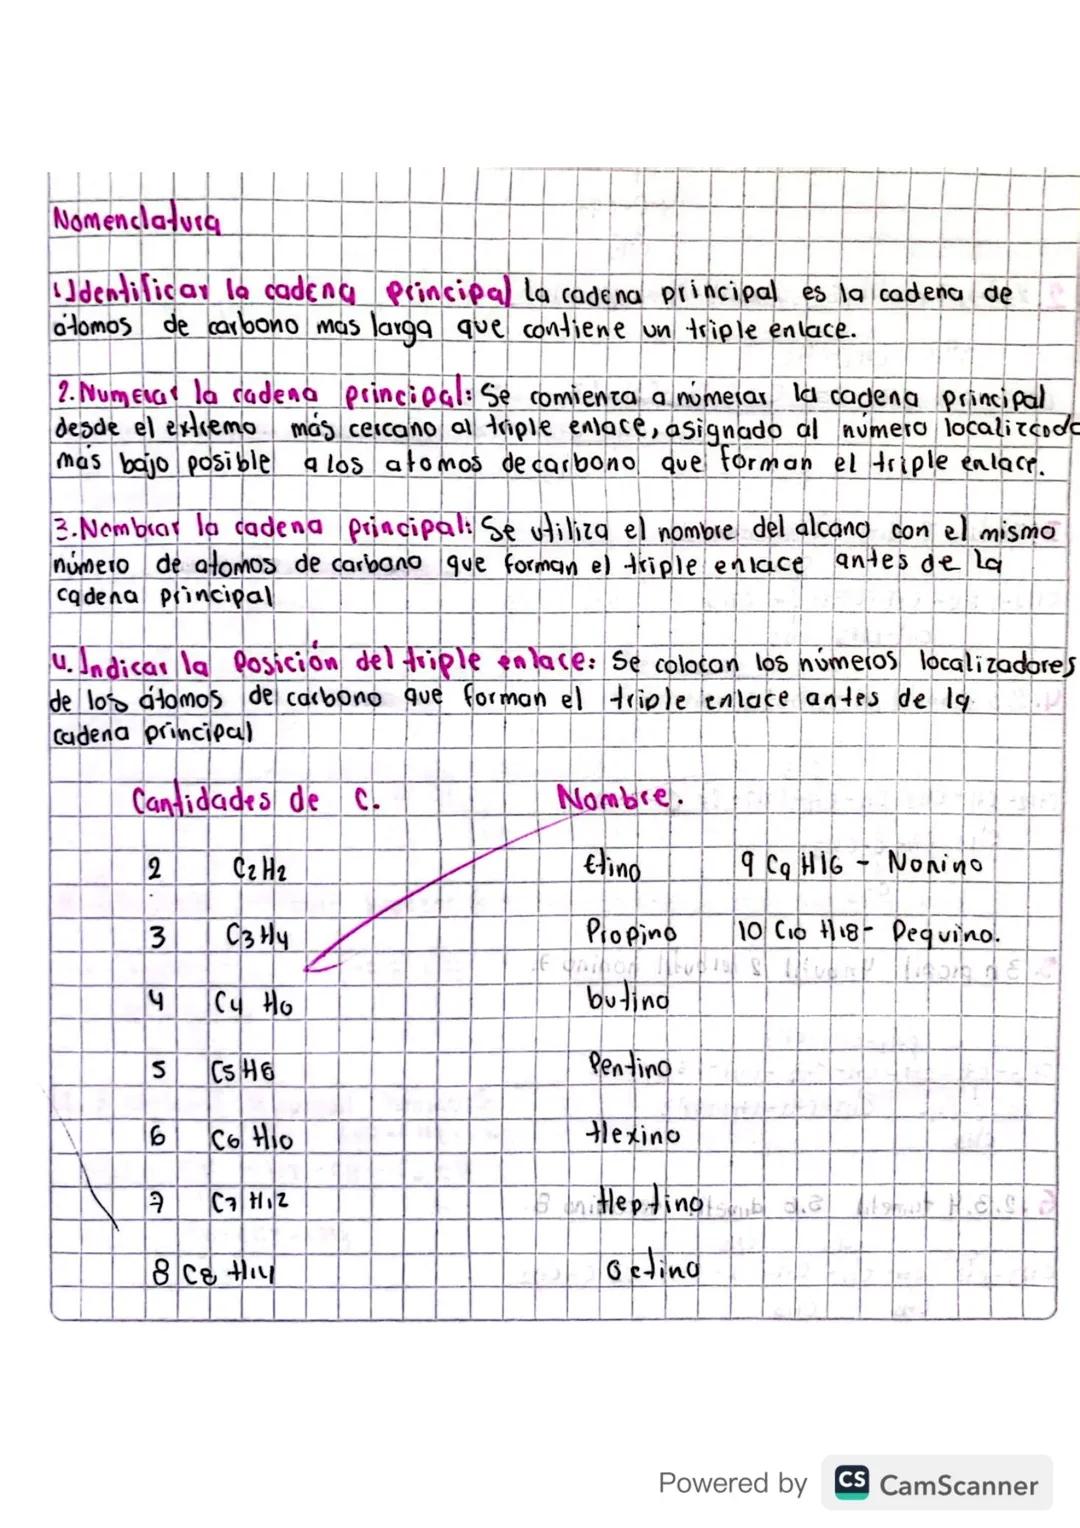 Nomenclatura
1.Identificar la cadena principal La cadena principal es la cadena de
átomos de carbono mas larga que contiene un triple enlace.
2.Numerar la cadena principal: Se comienza a númerar la cadena principal
desde el extremo más cercano al triple enlace, asignado al número localizcodo
mas bajo posible a los atomos de carbono que forman el triple enlace.
3.Nombrar la cadena principal: Se utiliza el nombre del alcano con el mismo
número de atomos de carbono que forman el triple enlace antes de la
cadena principal
4.Indicar la Posición del triple enlace: Se colocan los números localizadores
de los átomos de carbono que forman el triple enlace antes de la
cadena principal
Cantidades de C. Nombre.
2 C2H2 Etino 9 C9 H16 - Nonino
3 C3H4 Propino 10 C10 H18- Dequino.
4 C4 H6 butino
5 C5H8 Pentino
6 C6 H10 Hexino
7 C7 H12 Heptino
8 C8 H14 Octino
Powered by CS CamScanner